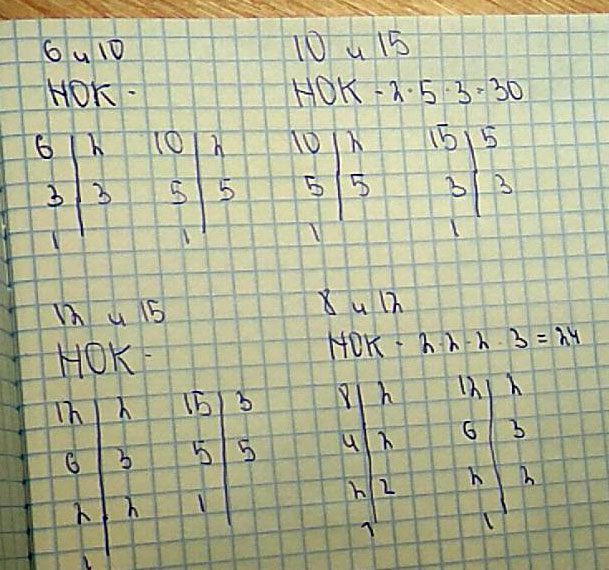 6 и 10
НОК -
6 | 2
3 | 3
1
10 | 2
5 | 5
1
10 и 15
НОК - 2·5·3 - 30
10 | 2
5 | 5
1
15 | 5
3 | 3
1
12 и 15
НОК -
12 | 2
6 | 3
2 | 2
1
15 | 3
5 | 5
1
8 и 12
НОК - 2·2·2·3 = 24
8 | 2
4 | 2
2 | 2
1
12 | 2
6 | 3
2 | 2
1